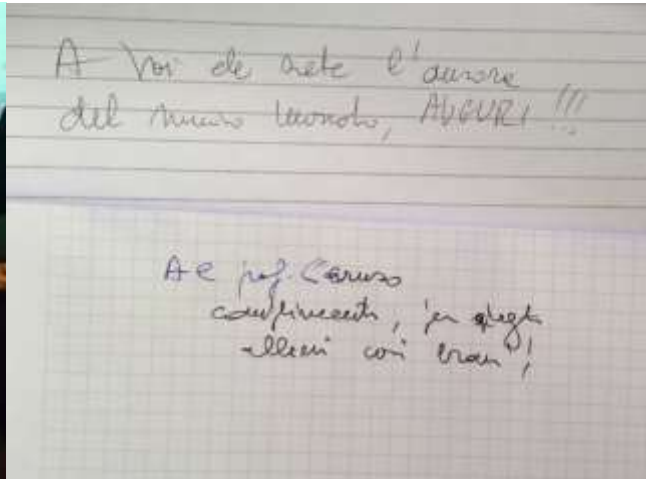 A Voi che siete l'aurora
del nuovo mondo, AUGURI!!!
Al prof. Caruso
complimenti, per degli
allievi così bravi!